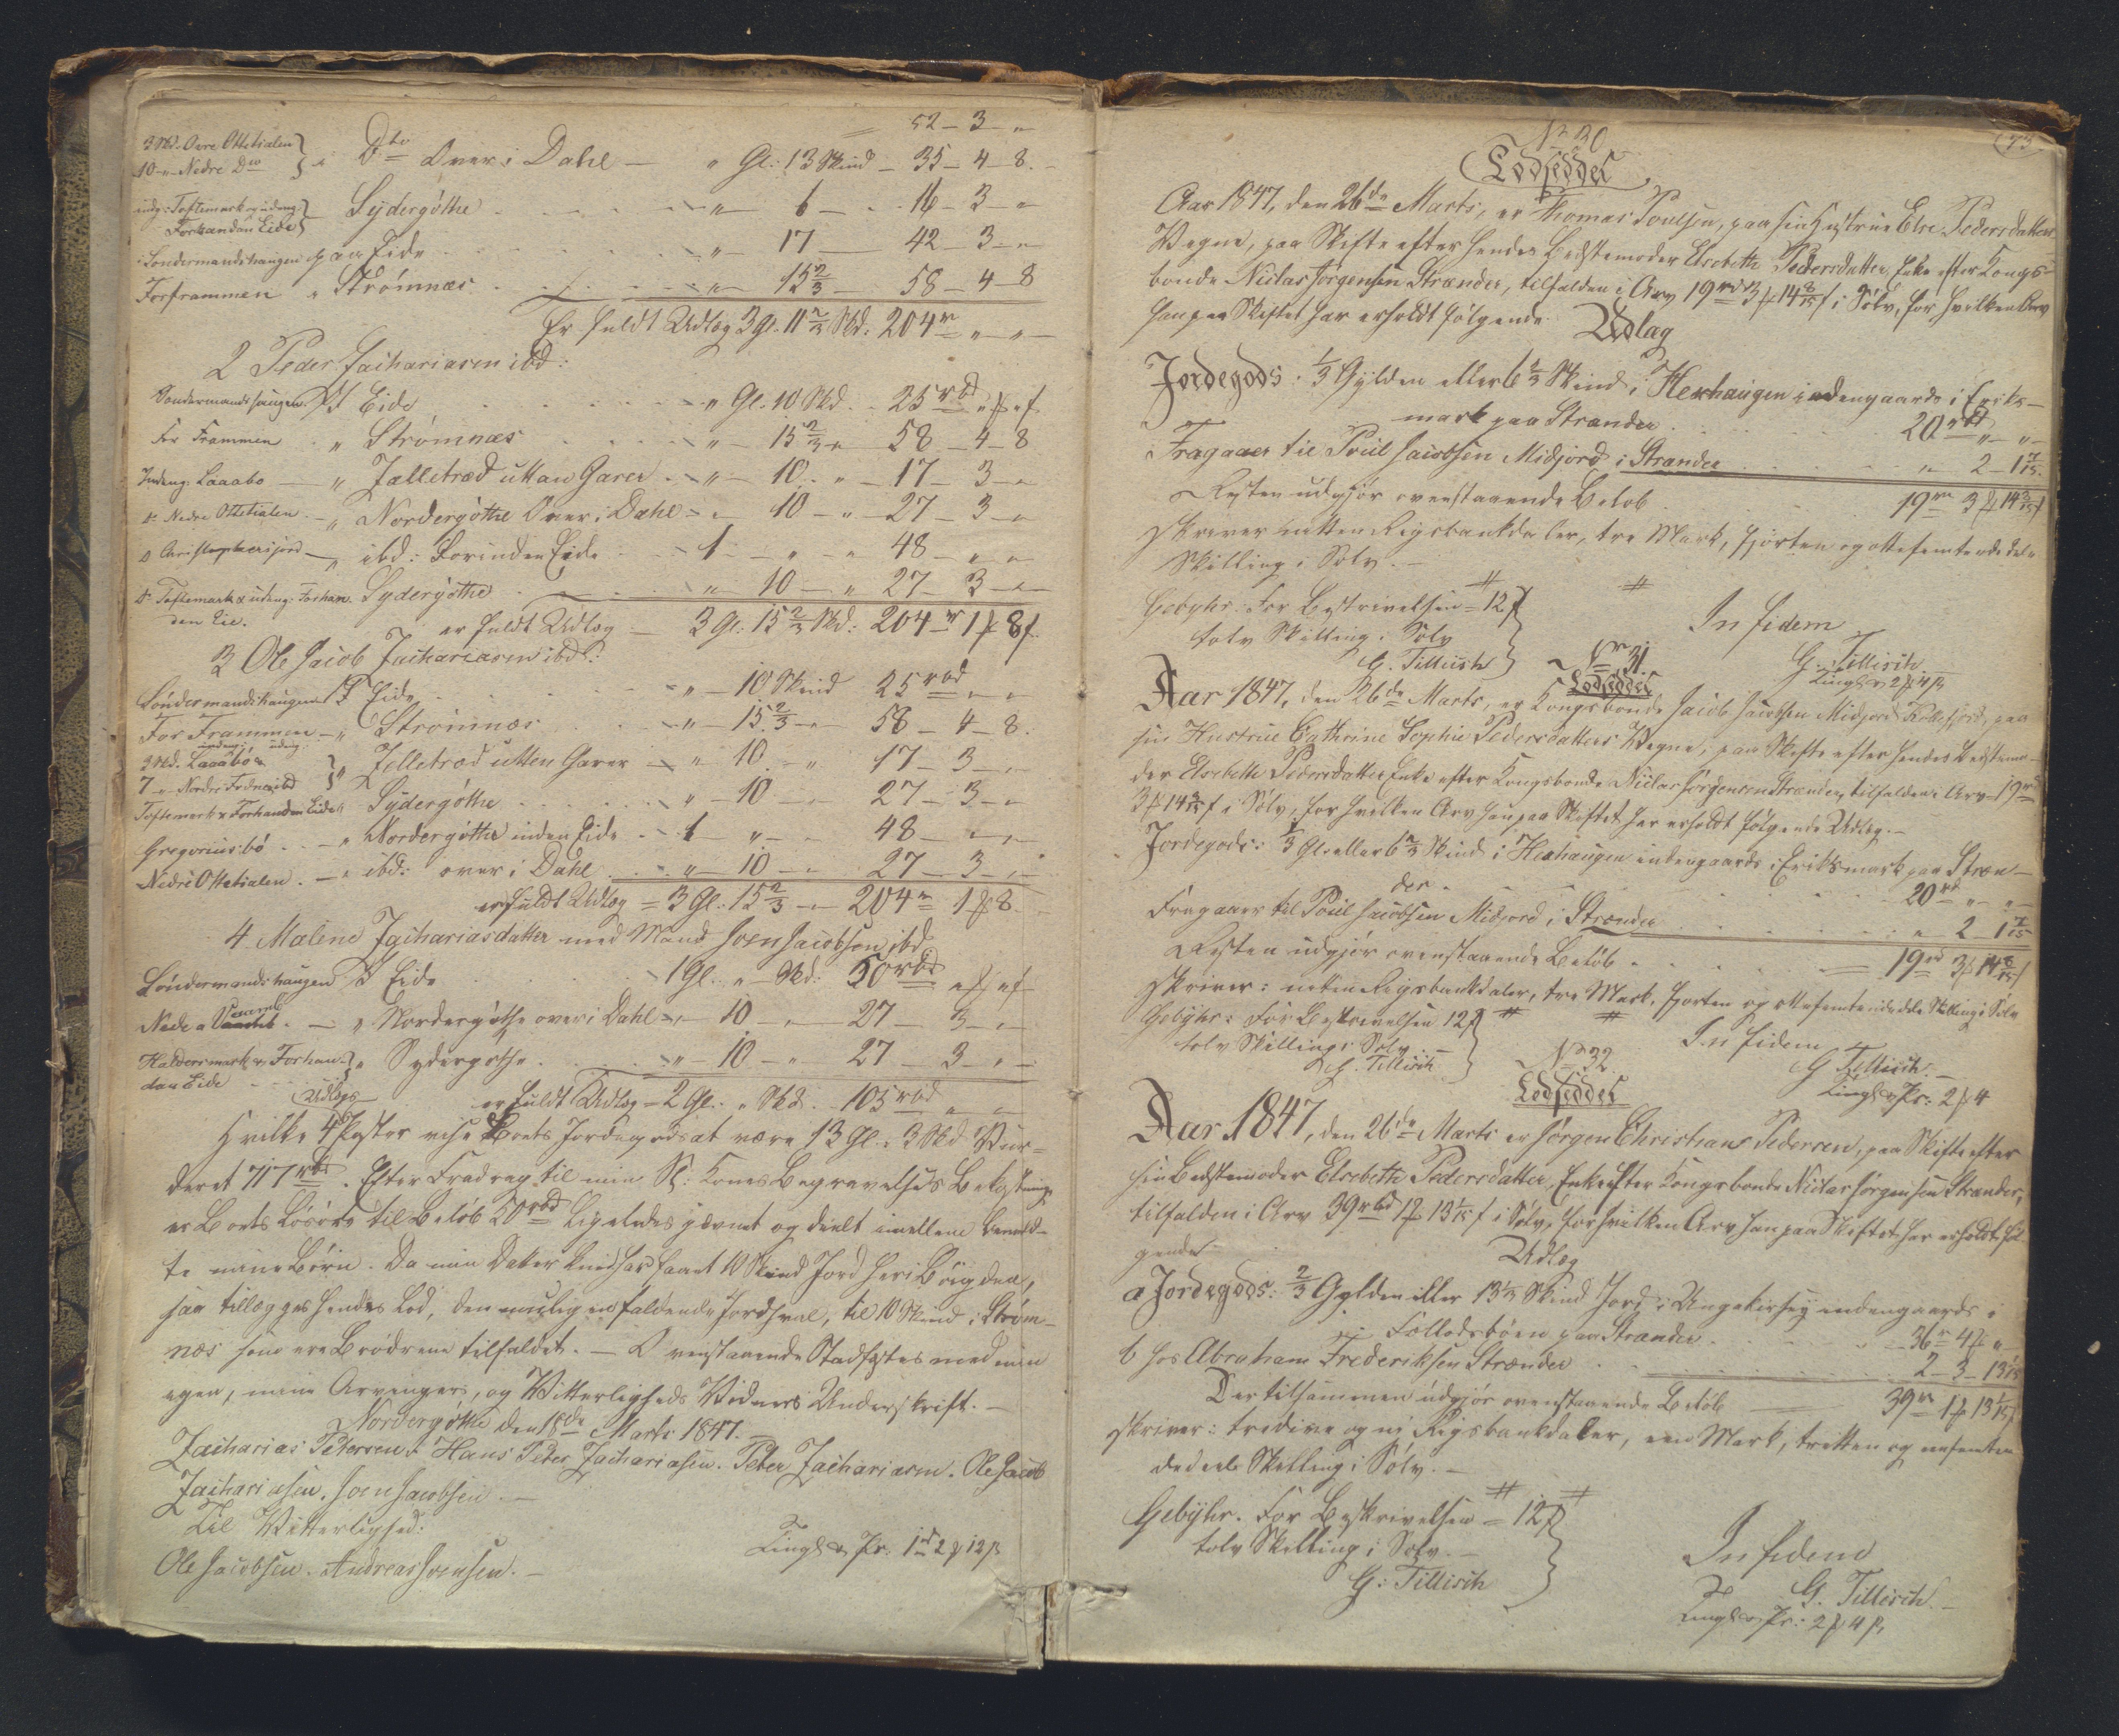 52 - 3 - "
3 Skd. Øvre Ottetialen
10 - " - Nedre Dto } " Dto Over i Dahl - " Gl: 13 Skind - 35 - 4 - 8.
indg: Toftemark & udeng:
Forhandan Eide } Sydergøthe - " - 6 - 16 - 3 - "
Søndermandshaugen paa Eide - " - 17 - 42 - 3 - "
Forframmen " Strømnæs - " - 15 2/3 - 58 - 4 - 8
Er fuldt Udlæg 3 Gl. 11 2/3 Skd: 204 rd " - " -
2 Peder Zachariasen ibd:
Søndermandshaugen. P Eide " Gl. 10 Skd. - 25 rbd " ß " f
For Frammen - " Strømnæs - " - 15 2/3 - " 58 - 4 - 8
Indeng: Laaabø - " Jelletræd uttan Garer - " - 10. - " - 17 - 3 - "
d: Nedre Ottetialen - " Nordergøthe Over i Dahl - " 10 - " - 27 - 3 - "
d Christophersjord - " ibd: Forinden Eide - 1 - " - " 48 - " - "
d: Toftemark & udeng: Forhan- Sydergøthe - " 10 - " 27 - 3 - "
den Eie.
er fuldt Udlæg - 3 Gl: 15 2/3 Skd: 204 rd 1 ß 8 f.
3 Ole Jacob Zachariasen ibd:
Søndermandshaugen P Eide - " - 10 Skind 25 rbd " - "
For Frammen - " Strømnæs - " - 15 2/3 - " 58 - 4 - 8.
indeng: udeng:
3 Skd. Laaabø &
7 - " - Nordre ibd } " Jelletræd utten Garer - " 10. - " 17 - 3 - "
Toftemark & Forhandan Eide " Sydergøthe - " - 10 - " 27 - 3 - "
Gregoriusbø - " Nordergøthe inden Eide - 1 " - " 48 - " - "
Nedre Ottetialen. - " ibd: over i Dahl - " - 10 - " 27 - 3 - "
er fuldt Udlæg = 3 Gl. 15 2/3 - " 204 rd 1 ß 8.
4 Malene Zachariasdatter med Mand Joen Jacobsen ibd
Søndermandshaugen P Eide - 1 Gl. " - Skd: 50 rbd " ß " f
Nede a - " Nordergøthe over i Dahl - " - 10 - " 27 - 3 - "
Haldersmark & Forhan-
dan Eide } " Sydergøthe - " - 10 - " 27 3 - " -
er fuldt Udlæg - 2 Gl. " Skd. 105 rbd " - "
Hvilke 4 Udlægs Poster vise Boets Jordegods at være 13 Gl. 3 Skd Vur-
deret 717 rbd. Efter Fradrag til min Sl: Kones Begravelses Bekostning
er Boets Løsøre til Beløb 50 rbd ligeledes jævnet og deelt imellem benævn-
te mine Børn. Da min Datter har faaet 10 Skind Jord her i Bøigden,
saa tillægges hendes Lod, den muligen faldende Jordhval, til 10 Skind i Strøm-
næs som ere Brødrene tilfaldet. - Ovenstaaende Stadfæstes med min
egen, mine Arvingers, og Vitterligheds Vidners Underskrift. -
Nordergøthe den 18de Marts 1847. -
Zacharias Petersen. Hans Peter Zachariasen. Peter Zachariasen. Ole Jacob
Zachariasen. Joen Jacobsen. -
Til Vitterlighed:
Ole Jacobsen. Andreas Joensen. -
Tingl. & Pr. 1 rd 2 ß 12 ß
73
No 30
Lodseddel
Aar 1847, den 26de Marts, er Thomas Poulsen, paa sin Hustrue Else Pedersdatters
Vegne, paa Skifte efter hendes Bedstemoder Elsebeth Pedersdatter, Enke efter Kongs-
bonde Niclas Jørgensen Strænder, tilfalden i Arv 19 rd 3 ß 14 8/15 f i Sølv, for hvilken Arv
han paa Skiftet har erholdt følgende Udlæg
Jordegods: 1/3 Gylden eller 6 2/3 Skind i Hexhaugen indengaards i Eriks-
mark paa Strænder 20 rbd " - " -
Fragaaer til Poul Jacobsen Midjord i Strænder " 2 - 1 7/15.
Resten udgjør ovenstaaende Beløb 19 rd 3 ß 14 8/15 f
skriver nitten Rigsbankdaler, tre Mark, fjorten og ottefemtendedele
Skilling i Sølv. -
Gebyhr: For Beskrivelsen = 12 ß
tolv Skilling i Sølv
G. Tillisch
In fidem
G. Tillisch
Tingl. & 2 ß 4 ß
No 31.
Lodseddel
Aar 1847, den 26de Marts, er Kongsbonde Jacob Jacobsen Midjord Kollefjord, paa
sin Hustrue Cathrine Sophie Pedersdatters Vegne, paa Skifte efter hendes Bedstemo-
der Elsebeth Pedersdatter Enke efter Kongsbonde Niclas Jørgensen Strænder, tilfalden i Arv 19 rd
3 ß 14 8/15 f i Sølv, for hvilken Arv han paa Skiftet har erholdt følgende Udlæg. -
Jordegods: 1/3 Gl. eller 6 2/3 Skind i Hexhaugen indengaards i Eriksmark paa Stræn-
der 20 rd " - " -
Fragaaer til Poul Jacobsen Midjord i Strænder " 2 - 1 7/15
Resten udgjør ovenstaaende Beløb - 19 rd 3 ß 14 8/15 f
skriver: nitten Rigsbankdaler, tre Mark, fjorten og ottefemtendedele Skilling i Sølv
Gebyhr: For Beskrivelsen 12 ß
tolv Skilling i Sølv. -
G. Tillisch
In fidem
G Tillisch. -
Tingl. & Pr: 2 ß 4
No 32.
Lodseddel
Aar 1847, den 26de Marts er Jørgen Christians Pedersen, paa Skifte efter
sin Bedstemoder Elsebeth Pedersdatter, Enke efter Kongsbonde Niclas Jørgensen Strænder,
tilfalden i Arv 39 rbd 1 ß 13 1/15 f i Sølv, for hvilken Arv han paa Skiftet har erholdt føl-
gende Udlæg
a Jordegods: 2/3 Gylden eller 13 1/3 Skind Jord i Ungakirsey indengaards i
Fællodsbøen paa Strænder 36 rd 4 ß "
b hos Abraham Frederiksen Strænder 2 - 3 - 13 1/15
Der tilsammen udgjør ovenstaaende Beløb 39 rd 1 ß 13 1/15 f
skriver: tredive og ni Rigsbankdaler, een Mark, tretten og eenfemten-
dedeel Skilling i Sølv. -
Gebyhr. For Beskrivelsen = 12 ß
tolv Skilling i Sølv. -
G: Tillisch
In fidem
G. Tillisch. -
Tingl. & Pr: 2 ß 4 ß